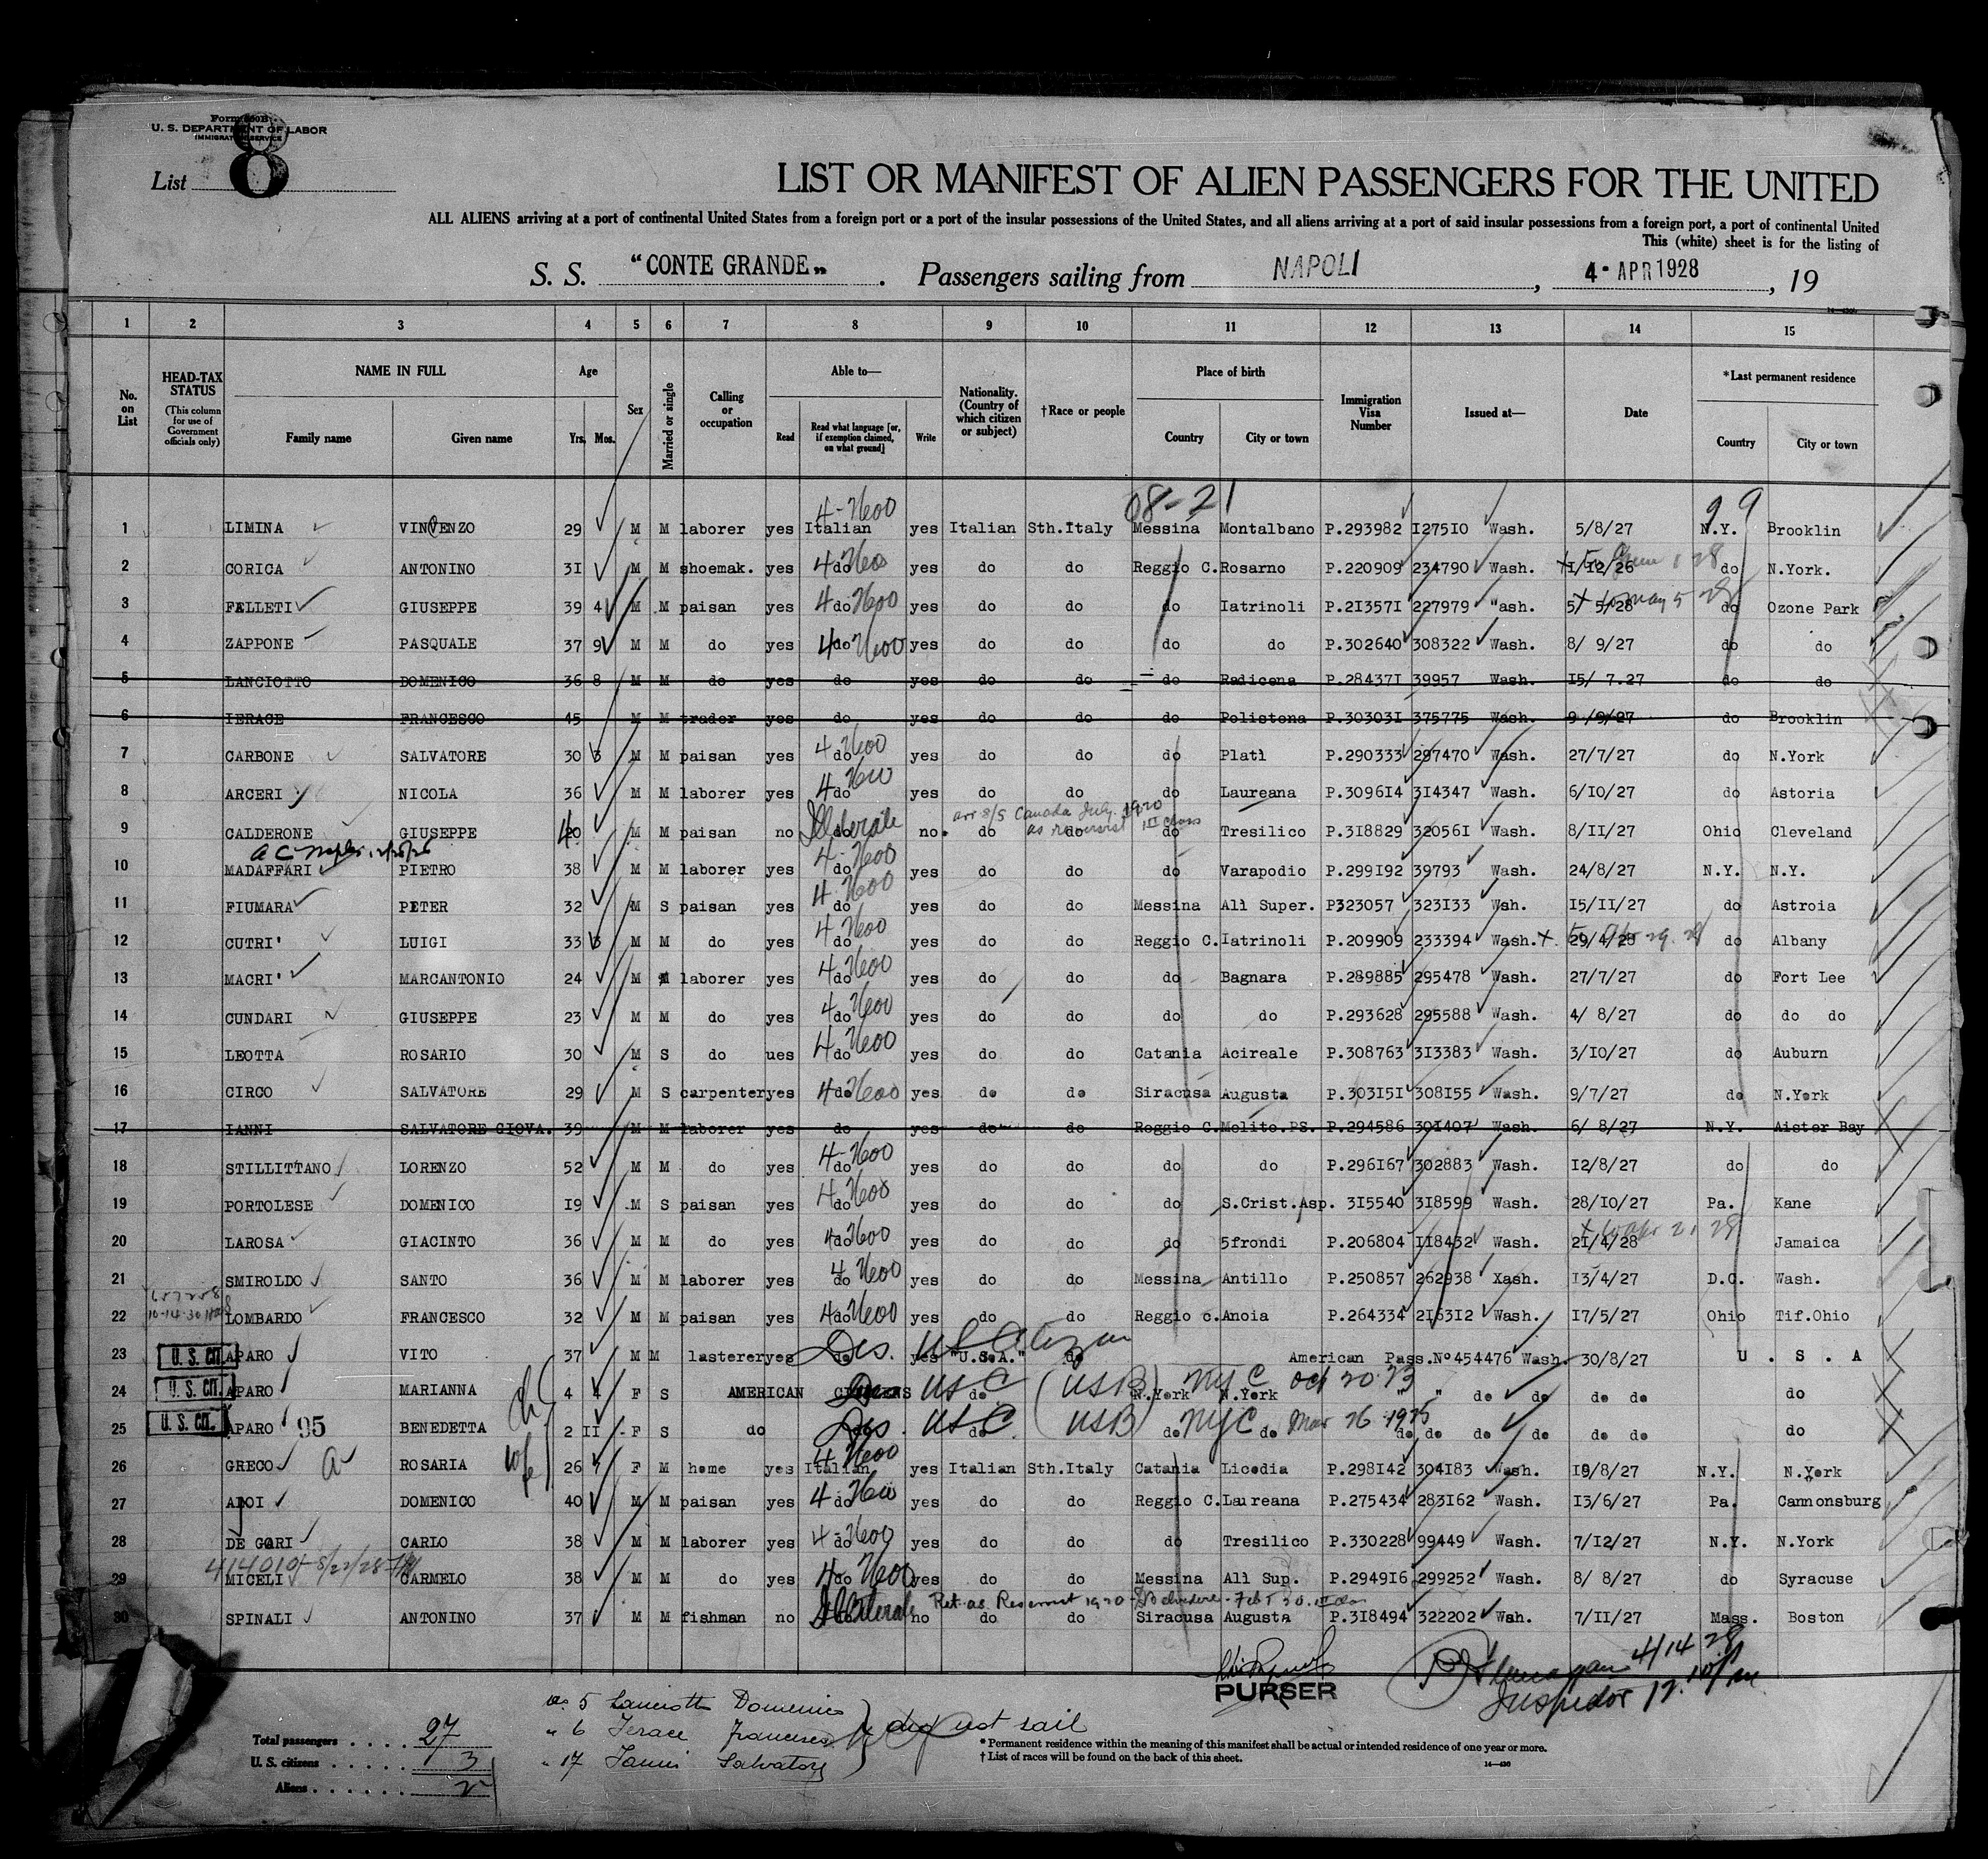 Form 500B
U. S. DEPARTMENT OF LABOR
IMMIGRATION SERVICE
List 8
LIST OR MANIFEST OF ALIEN PASSENGERS FOR THE UNITED
ALL ALIENS arriving at a port of continental United States from a foreign port or a port of the insular possessions of the United States, and all aliens arriving at a port of said insular possessions from a foreign port, a port of continental United
This (white) sheet is for the listing of
S. S. "CONTE GRANDE". Passengers sailing from NAPOLI, 4 - APR 1928, 19
1 2 3 4 5 6 7 8 9 10 11 12 13 14 15
No. on List HEAD-TAX STATUS (This column for use of Government officials only) NAME IN FULL Family name Given name Age Yrs. Mos. Sex Married or single Calling or occupation Able to— Read Read what language [or, if exemption claimed, on what ground] Write Nationality. (Country of which citizen or subject) †Race or people Place of birth Country City or town Immigration Visa Number Issued at— Date *Last permanent residence Country City or town
08-21 99
1 LIMINA VINVENZO 29 M M laborer yes Italian yes Italian Sth.Italy Messina Montalbano P.293982 I275I0 Wash. 5/8/27 N.Y. Brooklin
2 CORICA ANTONINO 3I M M shoemak. yes do yes do do Reggio C. Rosarno P.220909 234790 Wash. 1/12/26 June 1 28 do N.York.
3 FALLETI GIUSEPPE 39 4 M M paisan yes do yes do do do Iatrinoli P.2I357I 227979 "ash. 5/ 5/28 to May 5 28 do Ozone Park
4 ZAPPONE PASQUALE 37 9 M M do yes do yes do do do do P.302640 308322 Wash. 8/ 9/27 do do
5 LANCIOTTO DOMENICO 36 8 M M do yes do yes do do do Radicena P.28437I 39957 Wash. I5/ 7.27 do do
6 IERACE FRANCESCO 45 M M trader yes do yes do do do Polistena P.30303I 375775 Wash. 9 /9/27 do Brooklin
7 CARBONE SALVATORE 30 3 M M paisan yes do yes do do do Platì P.290333 297470 Wash. 27/7/27 do N.York
8 ARCERI NICOLA 36 M M laborer yes do yes do do do Laureana P.3096I4 3I4347 Wash. 6/I0/27 do Astoria
arr S/S Canada July 1920
as reservist III class
9 CALDERONE GIUSEPPE 40 M M paisan no do no. do do do Tresilico P.3I8829 32056I Wash. 8/II/27 Ohio Cleveland
10 MADAFFARI PIETRO 38 M M laborer yes do yes do do do Varapodio P.299I92 39793 Wash. 24/8/27 N.Y. N.Y.
11 FIUMARA PETER 32 M S paisan yes do yes do do Messina Alì Super. P323057 323I33 Wsh. I5/II/27 do Astroia
12 CUTRI' LUIGI 33 3 M M do yes do yes do do Reggio C. Iatrinoli P.209909 233394 Wash. 29/4/28 do Albany
13 MACRI' MARCANTONIO 24 M M laborer yes do yes do do do Bagnara P.289885 295478 Wash. 27/7/27 do Fort Lee
14 CUNDARI GIUSEPPE 23 M M do yes do yes do do do do P.293628 295588 Wash. 4/ 8/27 do do do
15 LEOTTA ROSARIO 30 M S do ues do yes do do Catania Acireale P.308763 3I3383 Wash. 3/I0/27 do Auburn
16 CIRCO SALVATORE 29 M S carpenter yes do yes do do Siracusa Augusta P.303I5I 308I55 Wash. 9/7/27 do N.York
17 IANNI SALVATORE GIOVA. 39 M M laborer yes do yes do do Reggio C. Melito.PS. P.294586 30I407 Wash. 6/ 8/27 N.Y. Aister Bay
18 STILLITTANO LORENZO 52 M M do yes do yes do do do do P.296I67 302883 Wash. I2/8/27 do do
19 PORTOLESE DOMENICO I9 M S paisan yes do yes do do do S.Crist.Asp. 3I5540 3I8599 Wash. 28/I0/27 Pa. Kane
20 LAROSA GIACINTO 36 M M do yes do yes do do do 5frondi P.206804 II8432 Wash. 2I/4/28 Jamaica
21 SMIROLDO SANTO 36 M M laborer yes do yes do do Messina Antillo P.250857 262938 Xash. I3/4/27 D.C. Wash.
22 LOMBARDO FRANCESCO 32 M M paisan yes do yes do do Reggio c. Anoia P.264334 2I63I2 Wash. I7/5/27 Ohio Tif.Ohio
23 U. S. CIT. APARO VITO 37 M M lasterer yes do yes "U.S.A." do US Citizen American Pass.Nº 454476 Wash. 30/8/27 U . S . A
24 U. S. CIT. APARO MARIANNA 4 4 F S AMERICAN CITIZENS do USC (USB) N.York N.York NYC Oct 20 23 " " do do do do do
25 U. S. CIT. APARO 95 BENEDETTA 2 II F S do do USC (USB) do NYC do Mar 26 1925 do do do do do do do
26 GRECO ROSARIA wife 26 7 F M home yes Italian yes Italian Sth.Italy Catania Licodia P.298I42 304I83 Wash. I9/8/27 N.Y. N.York
27 ALOI DOMENICO 40 M M paisan yes do yes do do Reggio C. Laureana P.275434 283I62 Wash. I3/6/27 Pa. Cannonsburg
28 DE GORI CARLO 38 M M laborer yes do yes do do do Tresilico P.330228 99449 Wash. 7/I2/27 N.Y. N.York
29 MICELI CARMELO 38 M M do yes do yes do do Messina Alì Sup. P.2949I6 299252 Wash. 8/ 8/27 do Syracuse
Ret. as Reservist 1920
30 SPINALI ANTONINO 37 M M fishman no do no do do Siracusa Augusta P.3I8494 322202 Wsh. 7/II/27 Mass. Boston
PURSER
4/14 28
Inspector
No. 5 Lanciotto Domenico
" 6 Ierace Francesco did not sail
" 17 Ianni Salvatore
Total passengers . . . . 27
U. S. citizens . . . . . 3
Aliens . . . . . .
* Permanent residence within the meaning of this manifest shall be actual or intended residence of one year or more.
† List of races will be found on the back of this sheet.
14—430